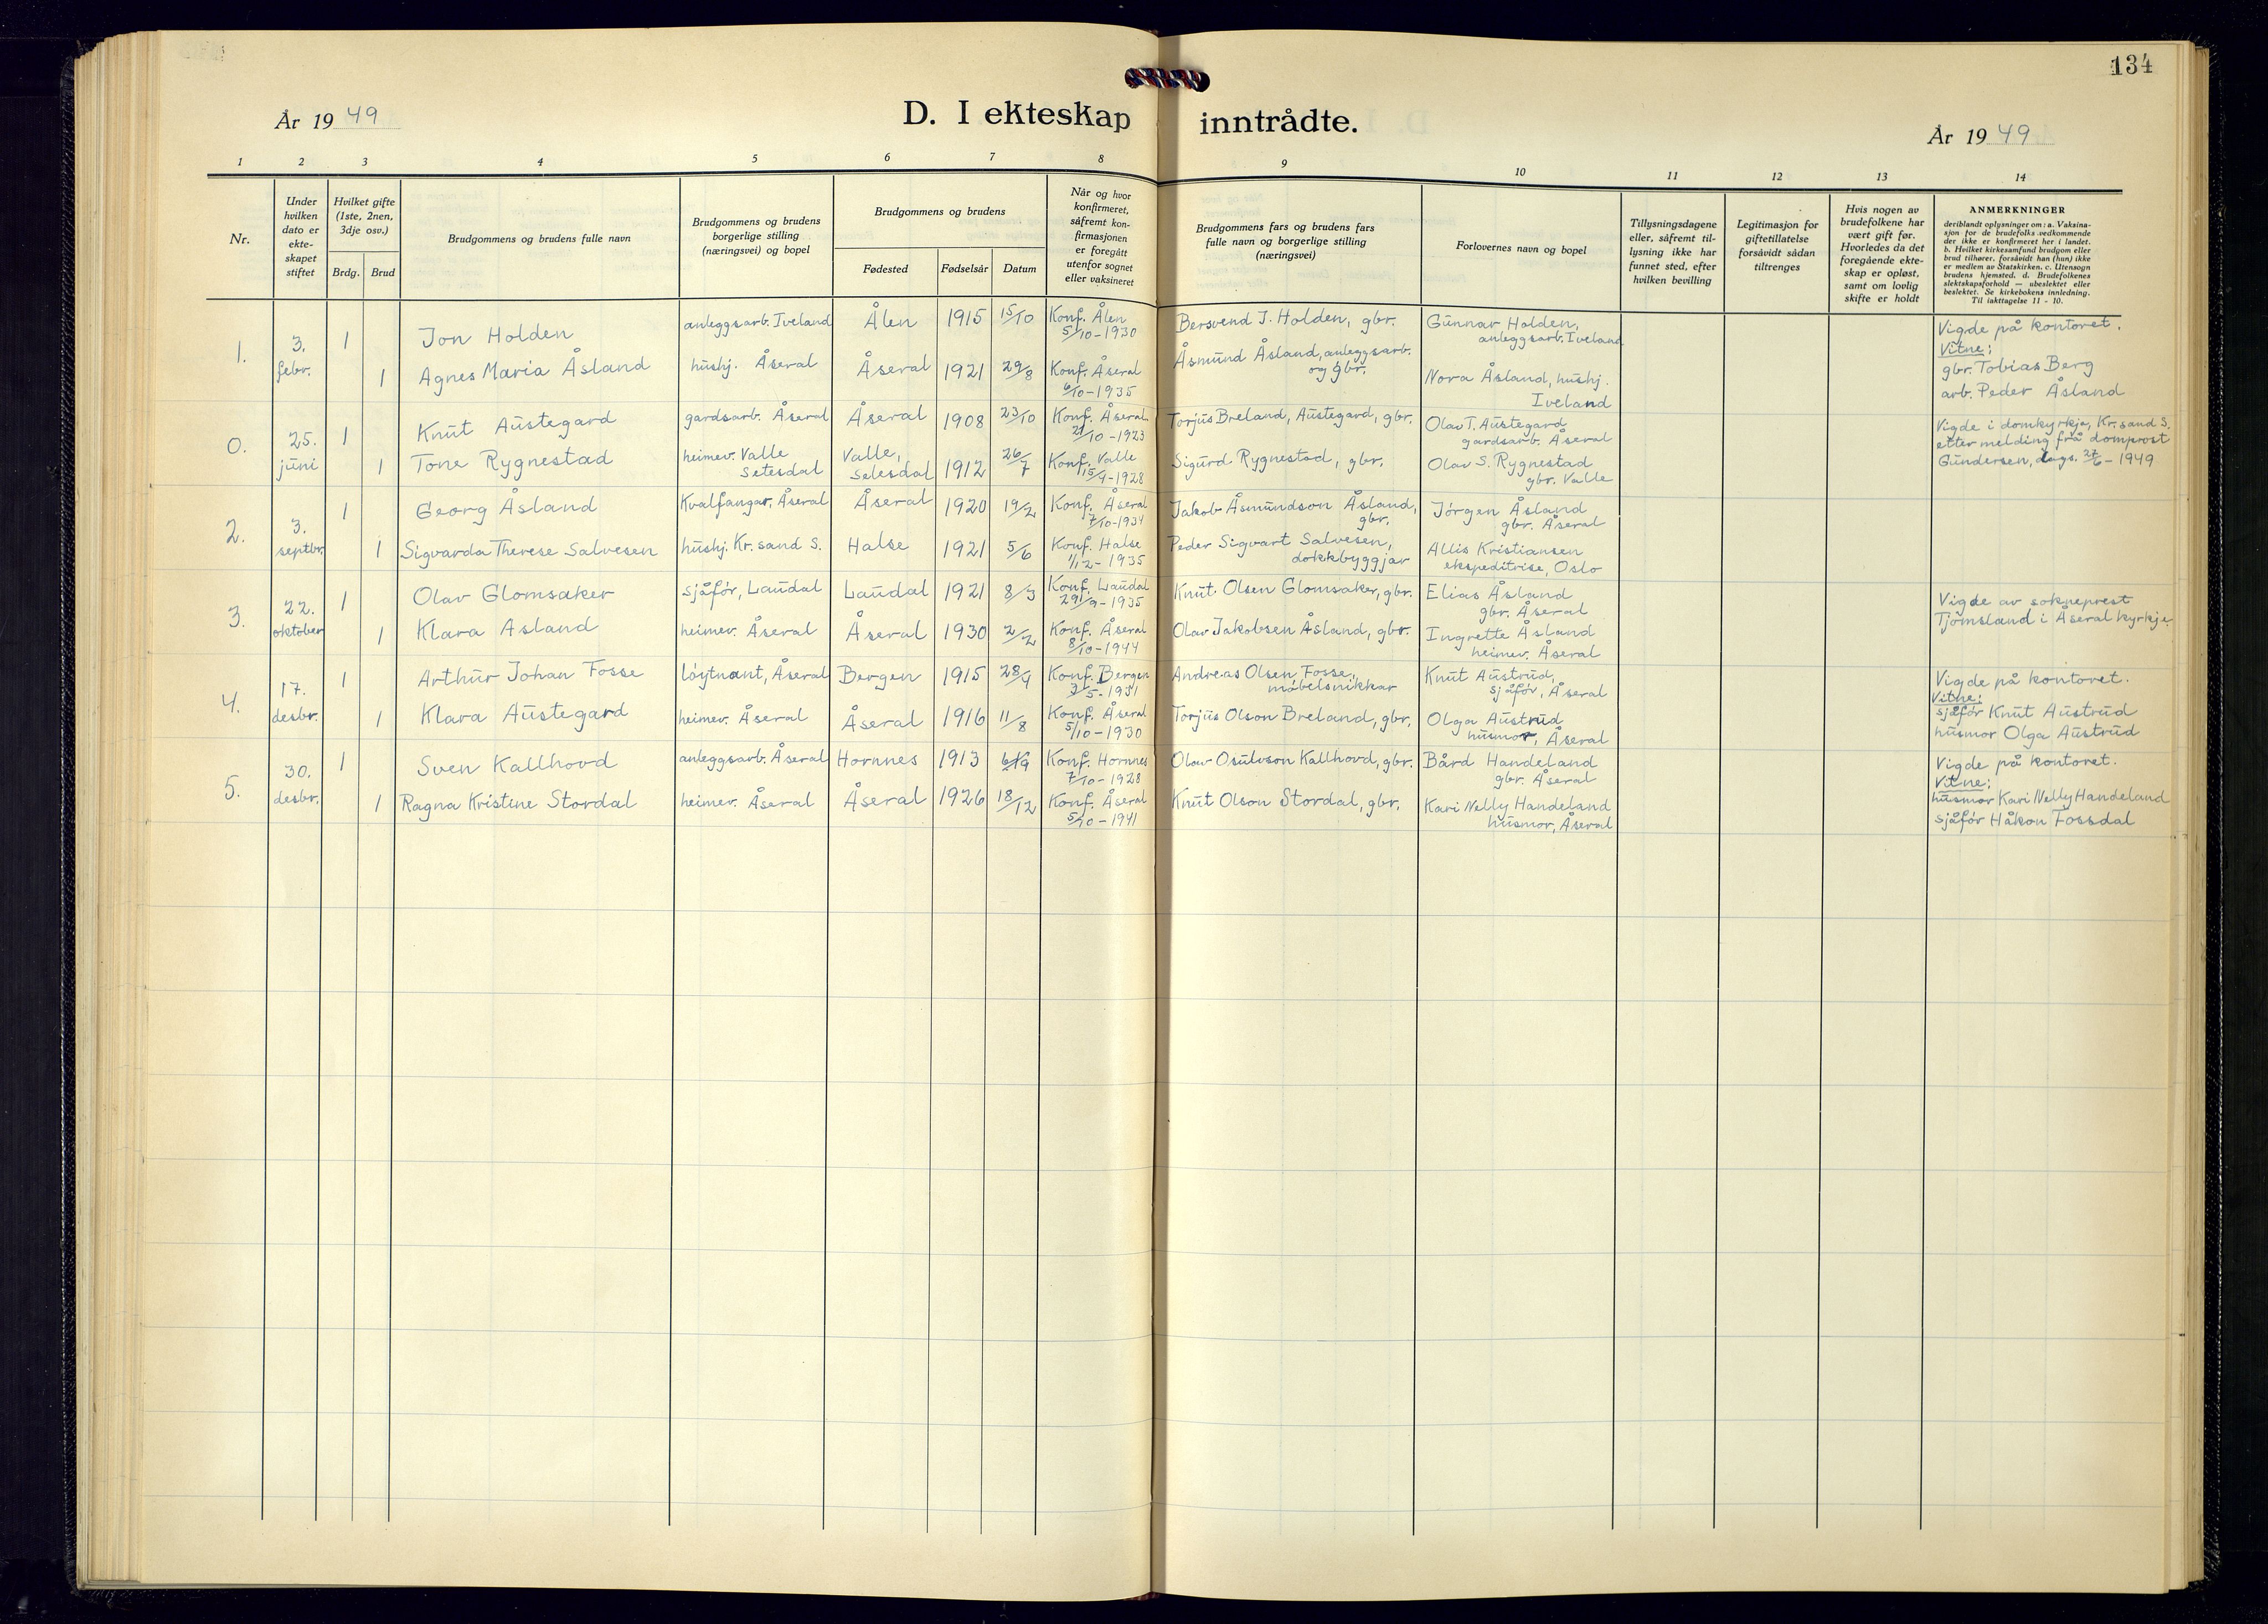 134
År 1949
D. I ekteskap inntrådte.
År 1949
1 2 3 4 5 6 7 8 9 10 11 12 13 14
Nr.
Under hvilken dato er ekte-skapet stiftet
Hvilket gifte (1ste, 2nen, 3dje osv.)
Brdg. Brud
Brudgommens og brudens fulle navn
Brudgommens og brudens borgerlige stilling (næringsvei) og bopel
Brudgommens og brudens
Fødested Fødselsår Datum
Når og hvor konfirmeret, såfremt kon-firmasjonen er foregått utenfor sognet eller vaksineret
Brudgommens fars og brudens fars fulle navn og borgerlige stilling (næringsvei)
Forlovernes navn og bopel
Tillysningsdagene eller, såfremt til-lysning ikke har funnet sted, efter hvilken bevilling
Legitimasjon for giftetillatelse forsåvidt sådan tiltrenges
Hvis nogen av brudefolkene har vært gift før. Hvorledes da det foregående ekte-skap er opløst, samt om lovlig skifte er holdt
ANMERKNINGER
deriblandt oplysninger om: a. Vaksina-sjon for de brudefolks vedkommende der ikke er konfirmeret her i landet. b. Hvilket kirkesamfund brudgom eller brud tilhører, forsåvidt han (hun) ikke er medlem av Statskirken. c. Utensogn brudens hjemsted. d. Brudefolkenes slektskapsforhold — ubeslektet eller beslektet. Se kirkebokens innledning. Til iakttagelse 11 - 10.
1. 3. febr. 1 Jon Holden anleggsarb. Iveland Ålen 1915 15/10 Konf. Ålen 5/10-1930 Bersvend J. Holden, gbr. Gunnar Holden, anleggsarb. Iveland Vigde på kontoret.
Vitne:
1 Agnes Maria Åsland hushj. Åseral Åseral 1921 29/8 Konf. Åseral 6/10-1935 Åsmund Åsland, anleggsarb. og gbr. Nora Åsland, hushj. Iveland gbr. Tobias Berg
arb. Peder Åsland
0. 25. juni 1 Knut Austegard gardsarb. Åseral Åseral 1908 23/10 Konf. Åseral 21/10-1923 Torjus Breland, Austegard, gbr. Olav T. Austegard gardsarb. Åseral Vigde i domkyrkje, Kr.sand S.
etter melding frå domprost
1 Tone Rygnestad heimev. Valle Setesdal Valle, Setesdal 1912 26/7 Konf. Valle 15/9-1928 Sigurd Rygnestad, gbr. Olav S. Rygnestad gbr. Valle Gundersen, dags. 27/6-1949
2. 3. septbr. 1 Georg Åsland Kvalfangar, Åseral Åseral 1920 19/2 Konf. Åseral 7/10-1934 Jakob Åsmundson Åsland, gbr. Jørgen Åsland gbr. Åseral
1 Sigvarda Therese Salvesen hushj. Kr.sand S. Halse 1921 5/6 Konf. Halse 1/12-1935 Peder Sigvart Salvesen, dokkbyggjar Allis Kristiansen ekspeditrise, Oslo
3. 22. oktober 1 Olav Glomsaker sjåfør, Laudal Laudal 1921 8/3 Konf. Laudal 29/9-1935 Knut Olsen Glomsaker, gbr. Elias Åsland gbr. Åseral Vigde av sokneprest
1 Klara Åsland heimev. Åseral Åseral 1930 2/2 Konf. Åseral 8/10-1944 Olav Jakobsen Åsland, gbr. Ingrette Åsland heimev. Åseral Tjomsland i Åseral kyrkje.
4. 17. desbr. 1 Arthur Johan Fosse løytnant, Åseral Bergen 1915 28/4 Konf. Bergen 3/5-1931 Andreas Olsen Fosse, møbelsnikkar Knut Austrud, sjåfør, Åseral Vigde på kontoret.
Vitne:
1 Klara Austegard heimev. Åseral Åseral 1916 11/8 Konf. Åseral 5/10-1930 Torjus Olson Breland, gbr. Olga Austrud husmor, Åseral sjåfør Knut Austrud
husmor Olga Austrud
5. 30. desbr. 1 Sven Kallhovd anleggsarb. Åseral Hornnes 1913 Konf. Hornnes 7/10-1928 Olav Osulvson Kallhovd, gbr. Bård Handeland gbr. Åseral Vigde på kontoret.
Vitne:
1 Ragna Kristine Stordal heimev. Åseral Åseral 1926 18/12 Konf. Åseral 5/10-1941 Knut Olson Stordal, gbr. Kari Nelly Handeland husmor, Åseral husmor Kari Nelly Handeland
sjåfør Håkon Fossdal